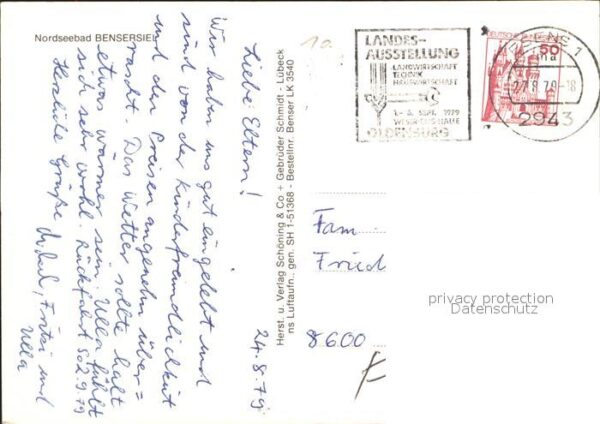 Nordseebad BENSERSIEL
24.8.79
Liebe Eltern!
Wir haben uns gut eingelebt und
sind von der Kinderfreundlichkeit
und den Preisen angenehm über=
rascht. Das Wetter sollte halt
etwas wärmer sein. Ulla fühlt
sich sehr wohl. Rückfahrt So 2.9.79
Herzliche Grüße und
Ulla
Herst. u. Verlag Schöning & Co + Gebrüder Schmidt - Lübeck
ns Luftaufn., gen. SH 1-51368 - Bestellnr. Benser LK 3540
10.
LANDES-
AUSSTELLUNG
LANDWIRTSCHAFT
TECHNIK
HAUSWIRTSCHAFT
SEPT. 1979
OLDENBURG
50
27.8.79-18
2943
Fam
Fried
8600
privacy protection
Datenschutz